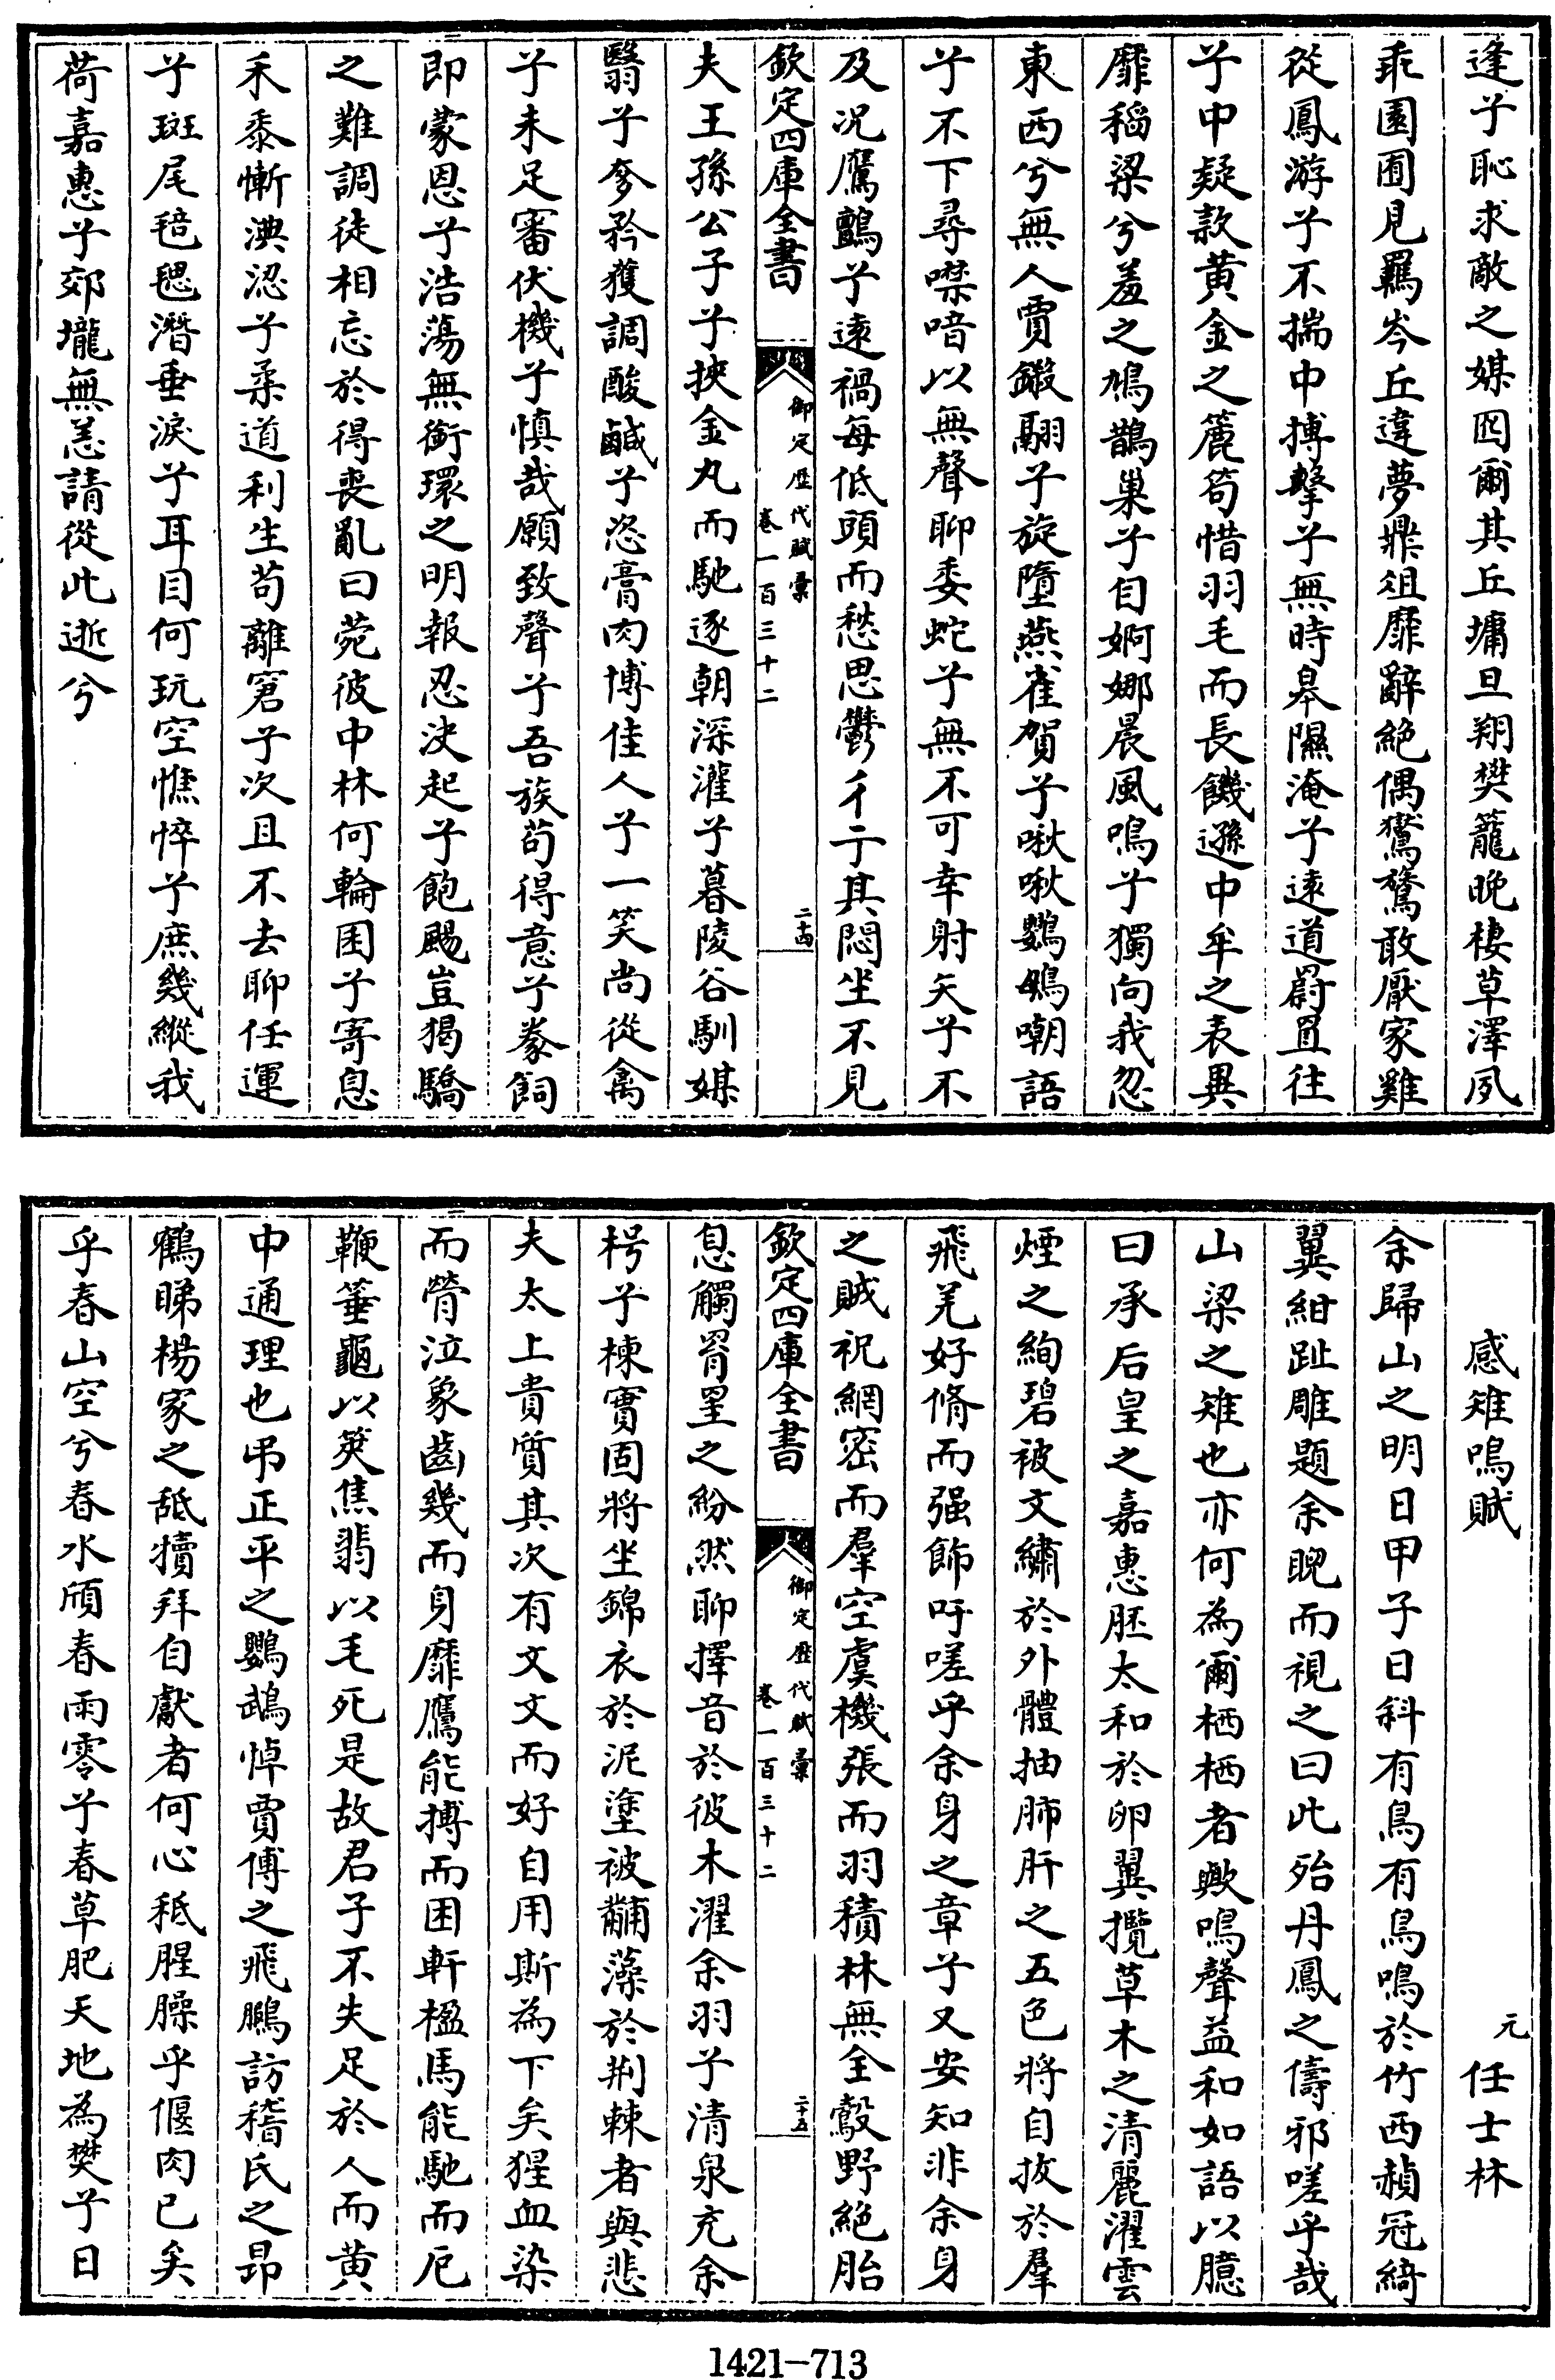 逢兮恥求敵之媒囮爾其丘墉旦翔樊籠晚棲草澤夙
乖園囿見羈岑丘違夢鼎俎靡辭絶偶鴛鴦敢厭家雞
從鳳游兮不揣中搏擊兮無時皋隰淹兮遠道罻罝往
兮中疑款黄金之簏笱惜羽毛而長饑遜中牟之表異
靡稻粱兮羞之鳩鵲巢兮自婀娜晨風鳴兮獨向我忽
東西兮無人賈鍛翮兮旋墮燕雀賀兮啾啾鸚鴂嘲語
兮不下尋噤喑以無聲聊委蛇兮無不可幸射矢兮不
及況鷹鸇兮遠禍每低頭而愁思鬱彳亍其悶坐不見
欽定四庫全書
御定歷代賦彙
卷一百三十二
二十四
夫王孫公子兮挾金丸而馳逐朝深灌兮暮陵谷馴媒
翳兮奓矜獲調酸鹹兮恣膏肉博佳人兮一笑尚從禽
兮未足審伏機兮慎哉願致聲兮吾族苟得意兮豢飼
即蒙恩兮浩蕩無銜環之明報忍決起兮飽颺豈猲驕
之難調徒相忘於得喪亂曰菀彼中林何輪囷兮寄息
禾黍慚淟涊兮柔道利生苟離窘兮次且不去聊任運
兮斑尾毰毸潛垂淚兮耳目何玩空憔悴兮庶幾縱我
荷嘉惠兮郊壠無恙請從此逝兮
感雉鳴賦
元
任士林
余歸山之明日甲子日斜有鳥有鳥鳴於竹西赬冠綺
翼紺趾雕題余睨而視之曰此殆丹鳳之儔邪嗟乎哉
山梁之雉也亦何為爾栖栖者歟鳴聲益和如語以臆
曰承后皇之嘉惠胚太和於卵翼攬草木之清麗濯雲
煙之絢碧被文繡於外體抽肺肝之五色將自拔於羣
飛羌好脩而强飾吁嗟乎余身之章兮又安知非余身
之賊祝網密而羣空虞機張而羽積林無全鷇野絶胎
欽定四庫全書
御定歷代賦彙
卷一百三十二
二十五
息觸罥罣之紛然聊擇音於彼木濯余羽兮清泉充余
枵兮棟實固將坐錦衣於泥塗被黼藻於荆棘者與悲
夫太上貴質其次有文文而好自用斯為下矣猩血染
而膋泣象齒幾而身靡鷹能搏而困軒楹馬能馳而厄
鞭箠龜以筴焦翡以毛死是故君子不失足於人而黄
中通理也弔正平之鸚鵡悼賈傅之飛鵩訪稽氏之昂
鶴睇楊家之舐犢拜自獻者何心秖腥臊乎偃肉已矣
乎春山空兮春水頎春雨零兮春草肥天地為樊兮日
1421-713